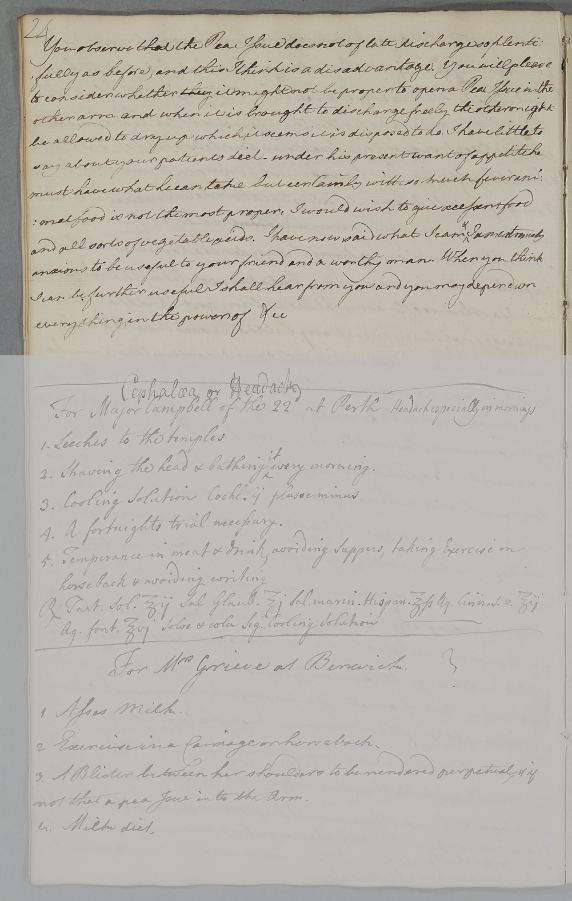 24
You observe that the Pea Issue does not of late discharge so plenti:
:fully as before, and this I think is a disadvantage. You will please
to consider whether they it might not be proper to open a Pea Issue in the
other arm and when it is brought to discharge freely the other might
be allowed to dry up which it seems it is disposed to do. I have little to
say about your patients diet. under his present want of appetite he
must have what he can take but certainly with so much fever ani:
:mal food is not the most proper. I would wish to give
and all sorts of vegetable acids. I have now said what I can & I am extremely
anxious to be useful to your friend and a worthy man. When you think
I can be further useful I shall hear from you and you may depend on
every thing in the power of &c
Cephalæa or Headach
For Major Campbell of the 22d at Perth Headach especially in mornings
1. Leeches to the temples
2. Shaving the head & bathing it every morning.
3. Cooling Solution Cochl. ij plus minus
4. A fortnights trial necessary.
5. Temperance in meat & drink, avoiding Suppers, taking Exercise on
horseback & avoiding writing
℞ Tart. Sol. ʒij Sal Glaub. ʒj Sal marin. Hispan. ʒſs Aq. Cinnam. ʒij
Aq. font. ʒvj Solve & cola Sig. Cooling Solution
For Mrs Grieve at Berwick.
1 Asses Milk.
2 Exercise in a Carriage or horseback.
3. A Blister between her shoulders to be rendered perpetual, & if
not that a pea Issue in to the Arm.
4. Milk diet.